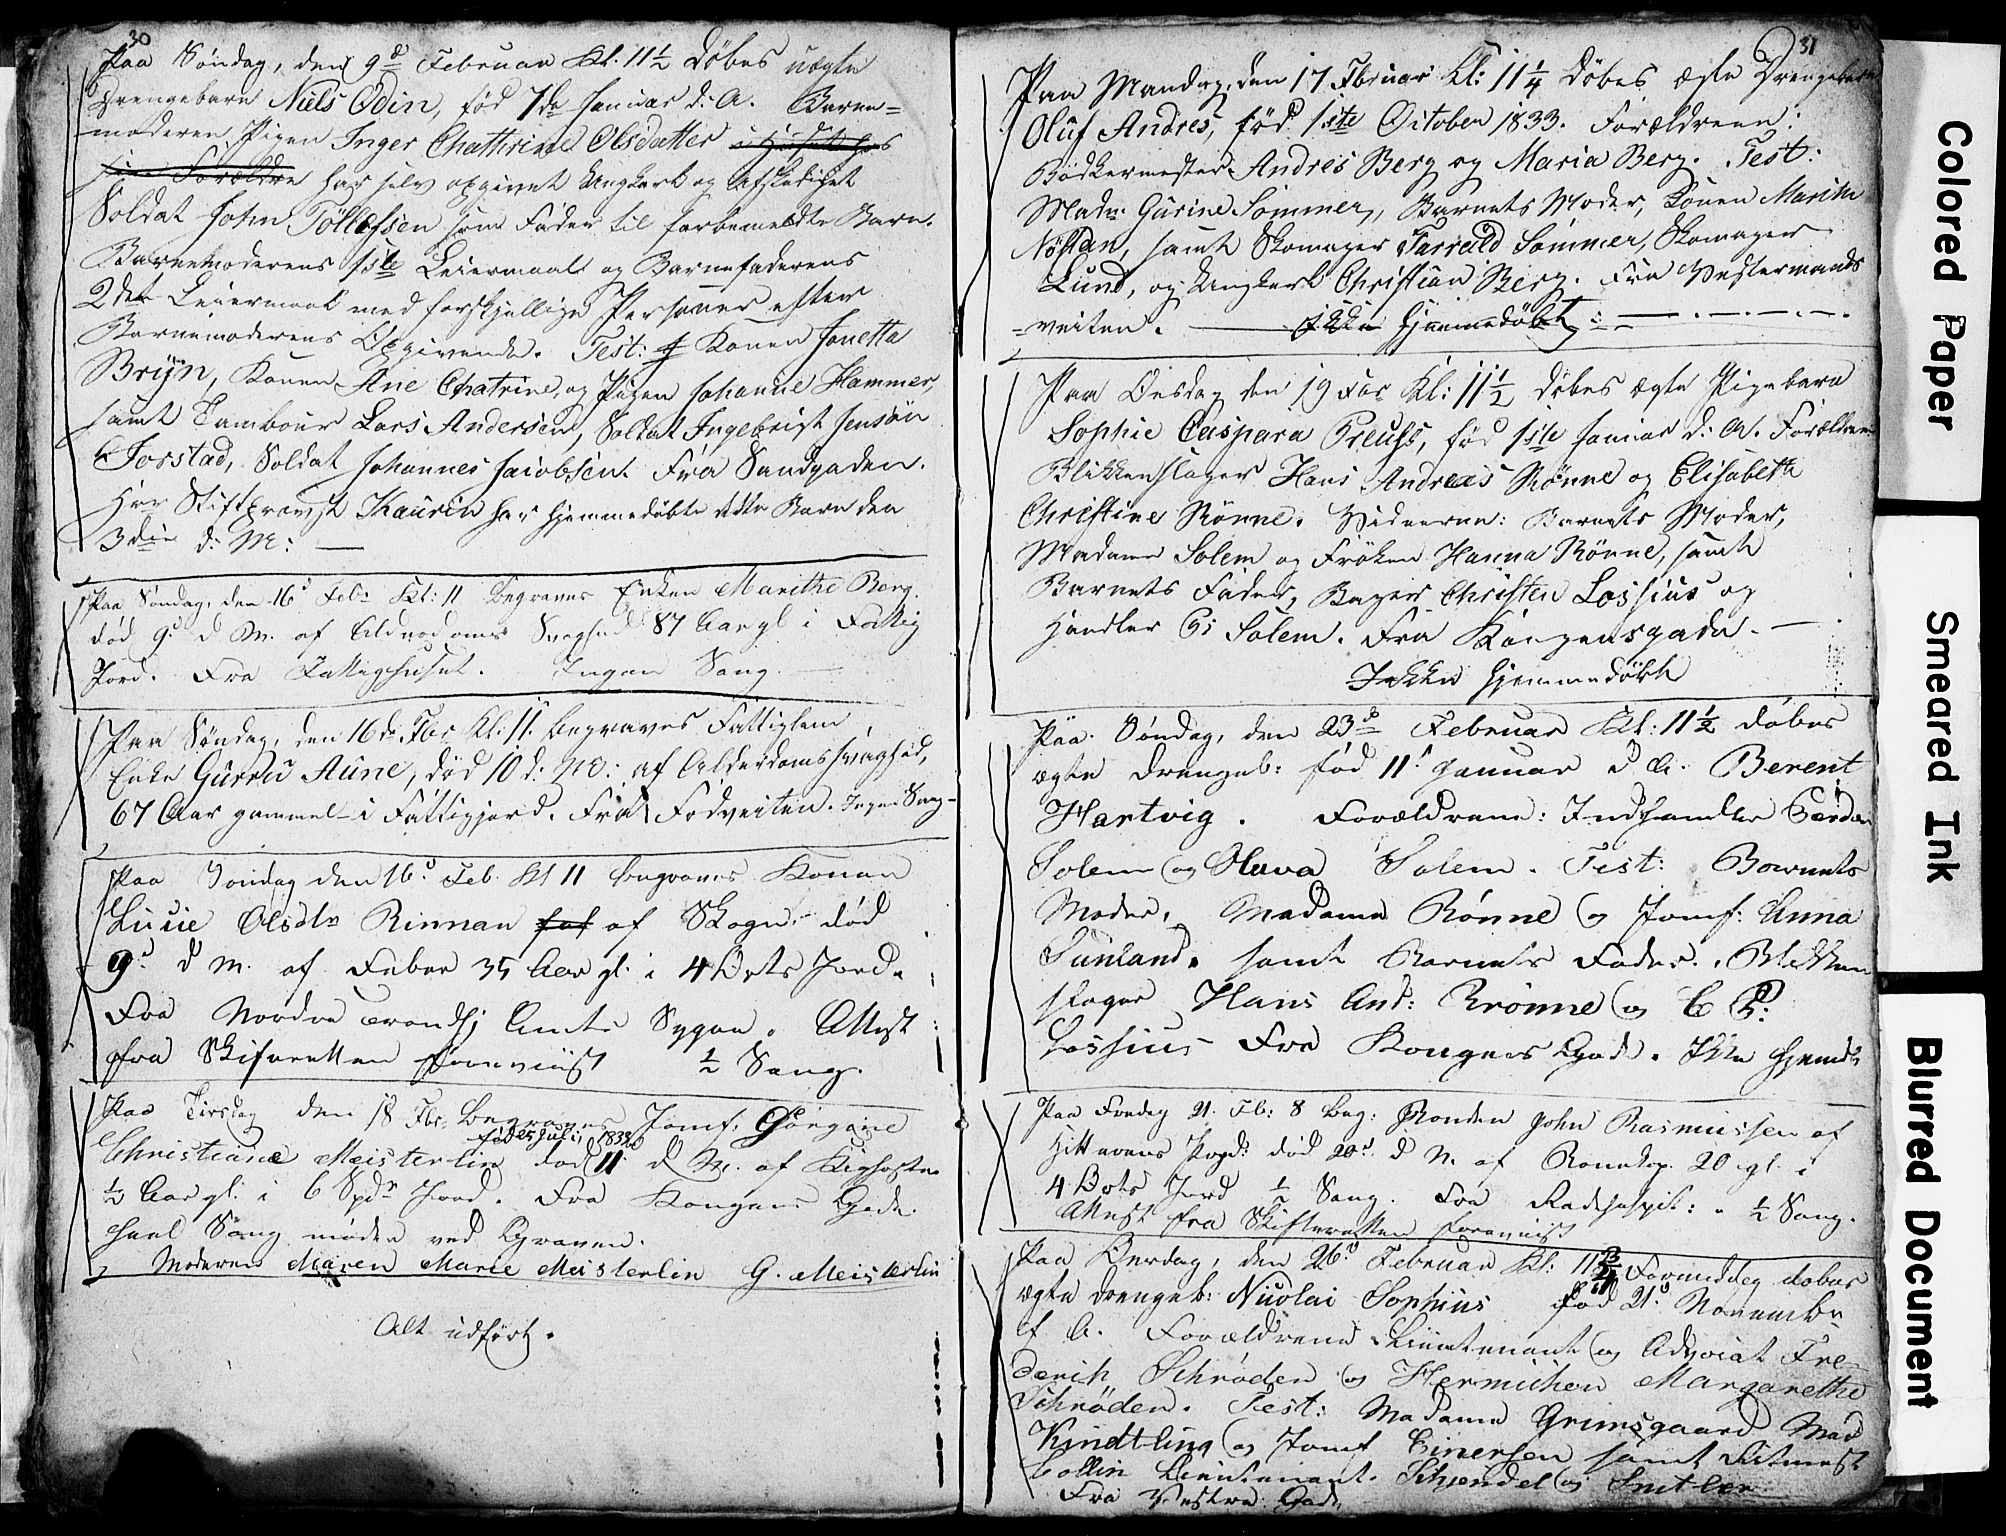 30
Paa Søndag, den 9de Februar Kl: 11 1/2 døbes uægte
Drengebarn Niels Odin, fød 7de Januar d: A. Barne-
moderen Pigen Inger Chathrine Olsdatter i Huset hos
sine Forældre har selv opgivet Ungkarl og afskediget
Soldat John Tölleffsen som Fader til forbemeldte Barn.
Barnemoderens 1ste Leiermaal og Barnefaderens
2det Leiermaal med forskjellige Personer efter
Barnemoderens Opgivende. Test: Konen Jonetta
Brÿn, Konen Ane Chatrine, og Pigen Johanne Hammer,
samt Tambour Lars Andersen, Soldat Ingebrigt Jensøn
Forstad, Soldat Johannes Jacobsen. Fra Sandgaden.
Hr Stiftsprovst Kaurin har hjemmedøbt dette Barn den
3die d: M: —
Paa Søndag, den 16d Feb: Kl: 11 begraves Enken Marithe Berg.
død 9d d M. af Alderdoms Svaghed 87 Aar gl i Fattig
Jord. Fra Fattighuset. Ingen Sang.
Paa Søndag, den 16de Fbr Kl: 11. begraves Fattiglem
Enke Gurru Aune, død 10 d: M: af Alderdomssvaghed,
67 Aar gammel i Fattigjord. Fra Fodveiten. Ingen Sang-
Paa Søndag den 16d Feb. Kl 11 begraves Konen
Lucie Olsdtr Rinnan af Skogn. død
9d d M. af Feber 35 Aar gl. i 4 Orts Jord.
Fra Nordre Trondhj Amts Sygeh. Attest
fra Skifteretten foreviist 1/2 Sang.
Paa Tirsdag den 18 Fbr. begraves Jomf: Gørgine
fød 25 Juli 1833
Christiane Meisterlin død 11 d M. af Kighoste
1/2 Aar gl. i 6 Spdr Jord. Fra Kongens Gade.
heel Sang møder ved Graven.
Moderen Maren Marie Meisterlin G. Meisterlin
Alt udført.
31
Paa Mandag, den 17 Februar Kl: 11 1/4 døbes ægte Drengebarn
Oluf Andres, fød 1ste October 1833. Forældrene:
Bødkermester Andres Berg og Maria Berg. Test:
Mad: Gurine Sommer, Barnets Moder, Konen Marithe
Nøstan, samt Skomager Tarrald Sommer, Skomager
Lund, og Ungkarl Christian Berg. Fra Vestermands
=veiten. — Ikke Hjemmedøbt
Paa Onsdag den 19 Febr Kl: 11 1/2 døbes ægte Pigebarn
Sophie Caspara Preuss, fød 1ste Januar d: A. Forældrene
Blikkenslager Hans Andreas Rönne og Elisabeth
Christine Rönne. Vidnerne: Barnets Moder,
Madame Solem og Frøken Hanna Rönne, samt
Barnets Fader, Bager Christen Lossius og
Handler Solem. Fra Kongensgade.
Ikke Hjemmedøbt
Paa Søndag, den 23d Februar Kl: 11 1/2 døbes
ægte Drengeb: fød 11 Januar d A. Berent
Hartvig. Forældrene: Indhandler
Solem og Olava Solem. Test: Barnets
Moder, Madame Rönne og Jomf: Anna
Sunland. samt Barnets Fader. Blikken
slager Hans And: Rrönne og C P:
Lossius Fra Kongens Gade. Ikke hjemd:
Paa Fredag 21. Fb: 8 beg: Bonden John Rasmussen af
Hitterens Prgd: død 20d. d M. af 20 gl. i
4 Orts Jord 1/2 Sang. Fra Radhospit: 1/2 Sang.
Attest fra Skifteretten foreviist
Paa Onsdag, den 26d Februar Kl: 11 3/4 Formiddag døbes
ægte Drengeb: Nicolai Sophius fød 21d Novembr
f A. Forældrene Lieutenant og Advocat Fre-
derich Schrøder og Hermichen Margarethe
Schrøder. Test: Madame Grimsgaard Mad
Kindtling og Jomf Einersen samt Ritmest
Collin Lieutenant. Schjendel og Smitler
Fra Vestre Gade,
Colored Paper
Smeared Ink
Blurred Document